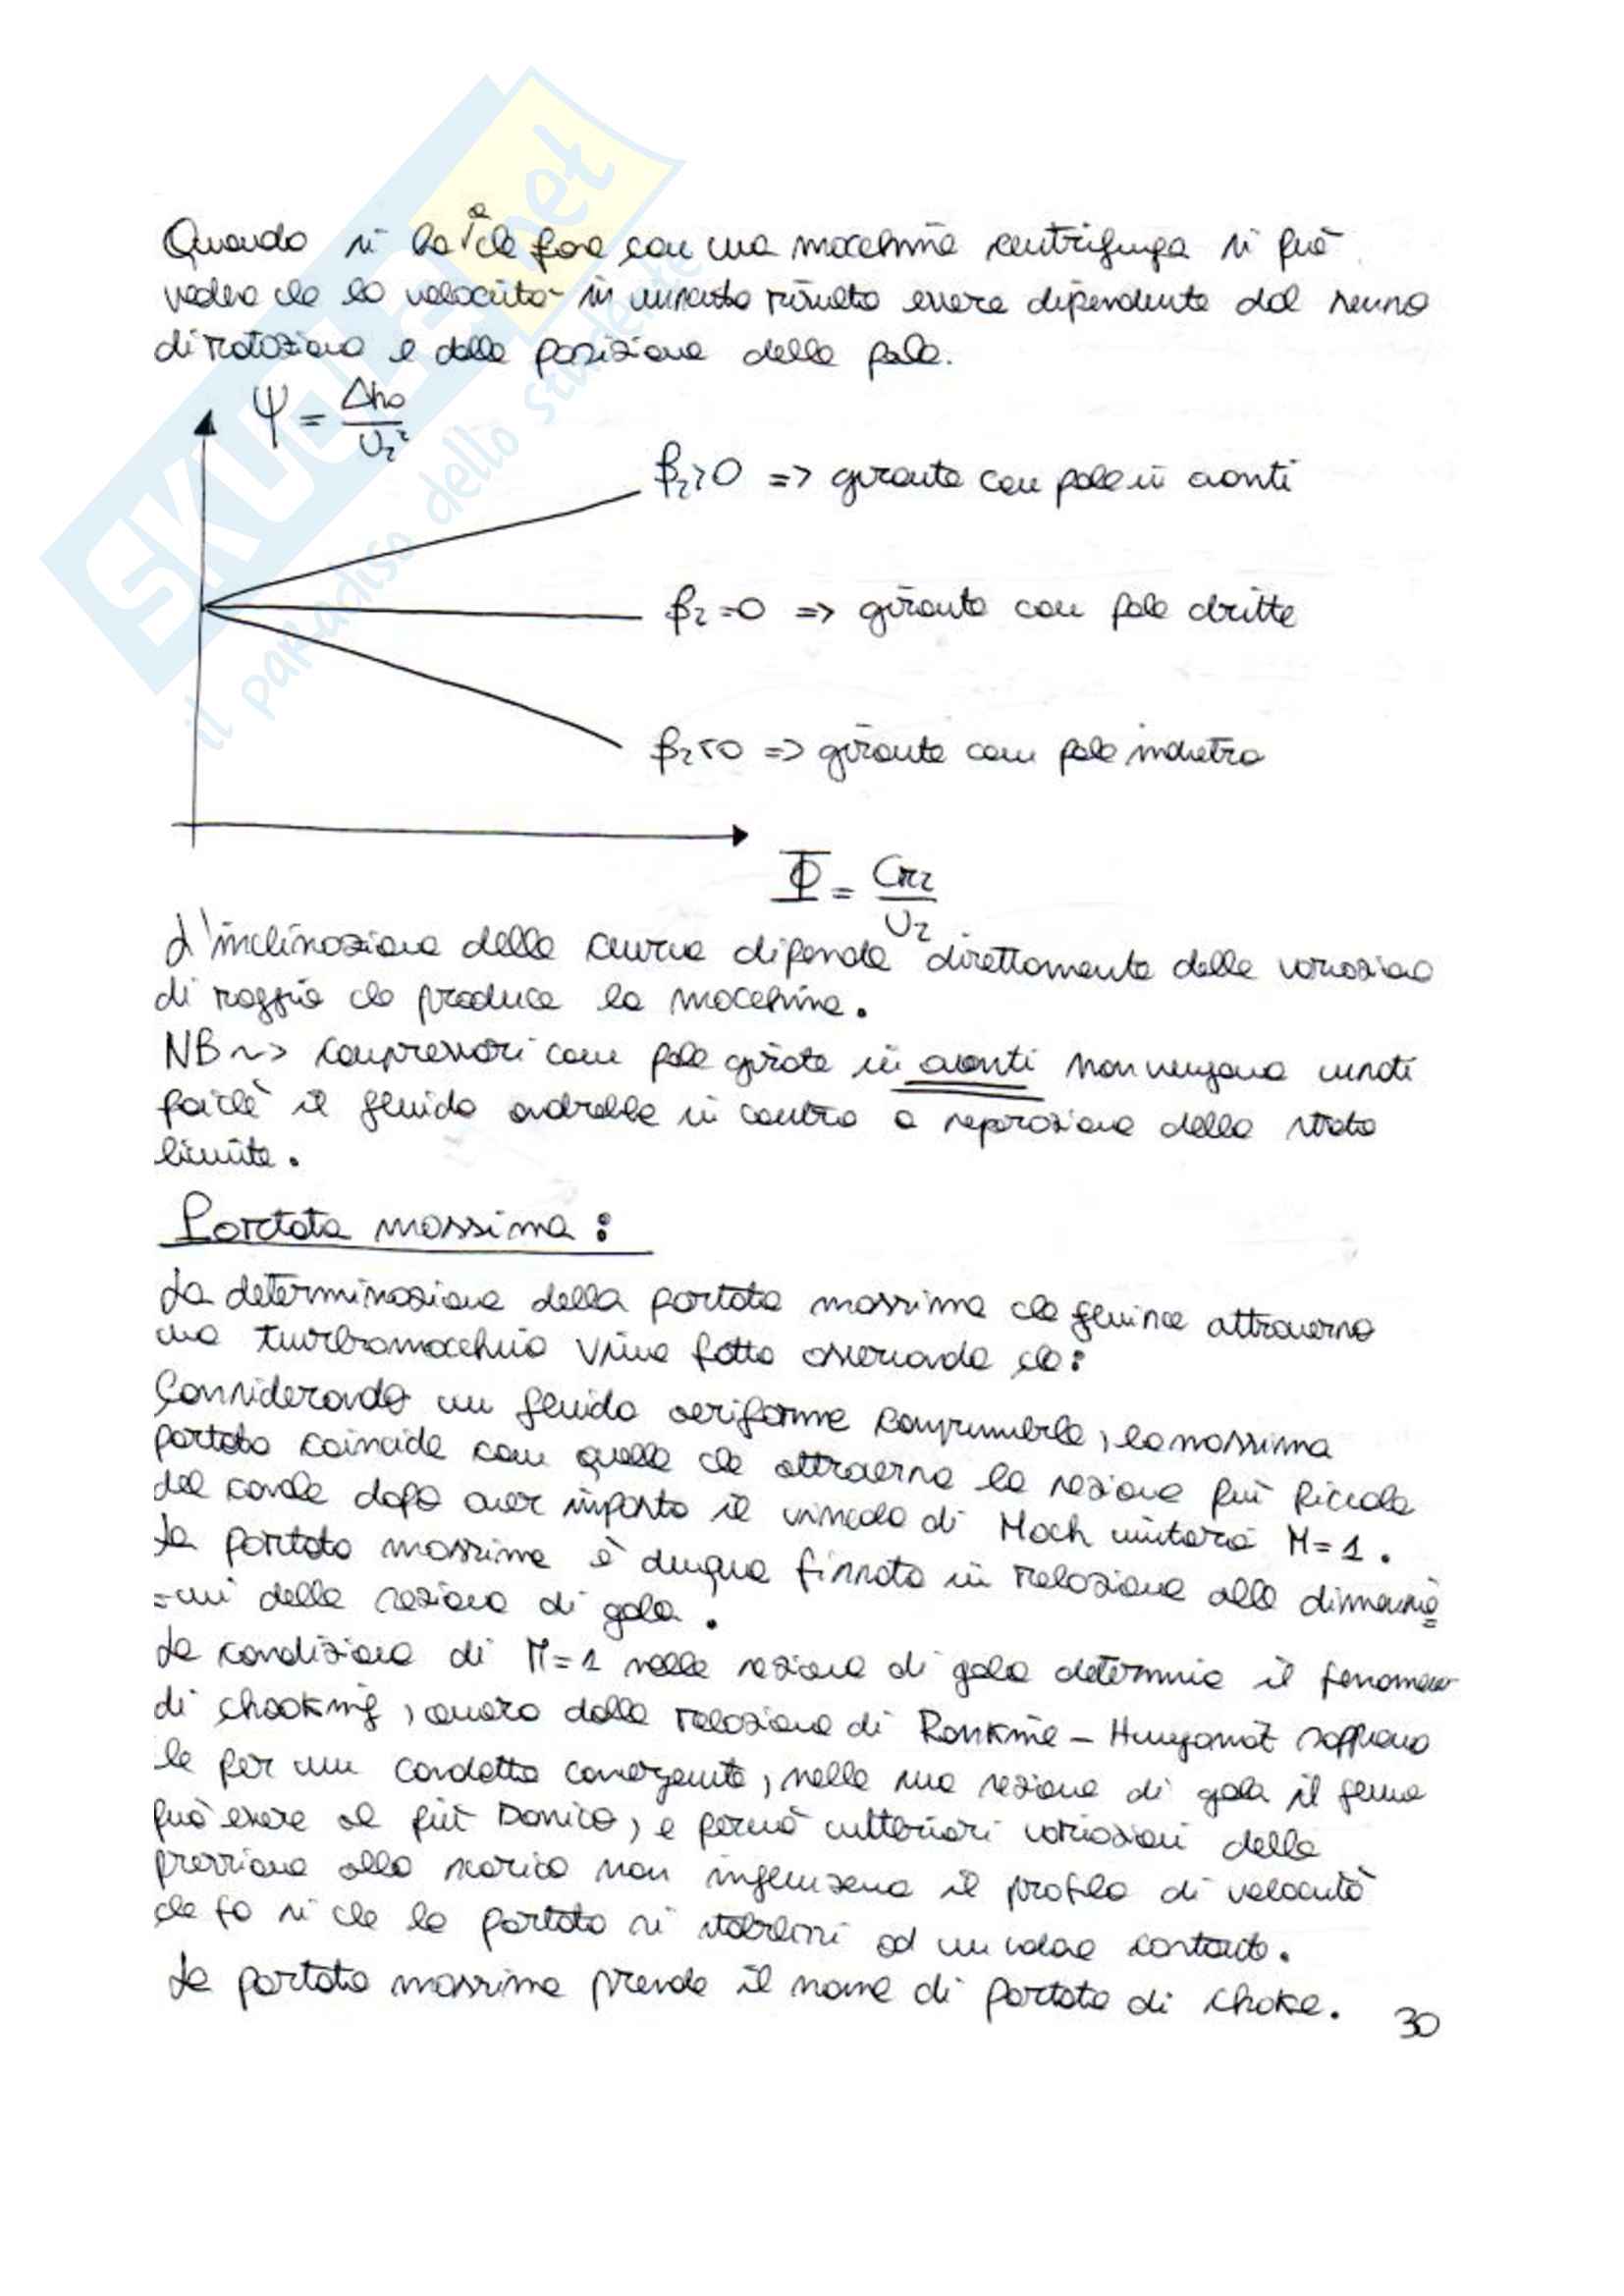 Quando si ha a che fare con una macchina centrifuga si può
vedere che la velocità in uscita risulta essere dipendente dal senso
di rotazione e dalla posizione delle pale.
Ψ = Δho / U2²
β2>0 => girante con pale in avanti
β2=0 => girante con pale dritte
β2<0 => girante con pale indietro
Φ = Cr2 / U2
L'inclinazione della curva dipende direttamente dalla variazione
di raggio che produce la macchina.
NB ~> compressori con pale girate in avanti non vengono usati
poichè il fluido andrebbe in contro a separazione dello strato
limite.
Portata massima:
La determinazione della portata massima che fluisce attraverso
una turbomacchina viene fatta osservando che:
Considerando un fluido aeriforme comprimibile, la massima
portata coincide con quella che attraversa la sezione più piccola
del canale dopo aver imposto il vincolo di Mach unitario M=1.
La portata massima è dunque fissata in relazione alle dimensio=
=ni della sezione di gola.
La condizione di M=1 nella sezione di gola determina il fenomeno
di chooking, ovvero dalla relazione di Rankine - Hungoniot sappiamo
che per un condotto convergente, nella sua sezione di gola il flusso
può essere al più sonico, e perciò ulteriori variazioni della
pressione allo scarico non influenzano il profilo di velocità
che fa si che la portata si stabilizzi ad un valore costante.
La portata massima prende il nome di portata di choke.
30
SKUOLA.net
il paradiso dello studente